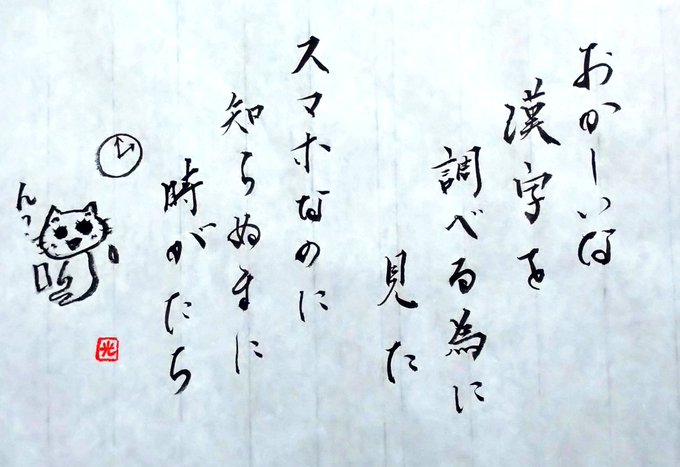 おかしいな
漢字を
調べる為に
見た
スマホなのに
知らぬまに
時がたち
んっ
光